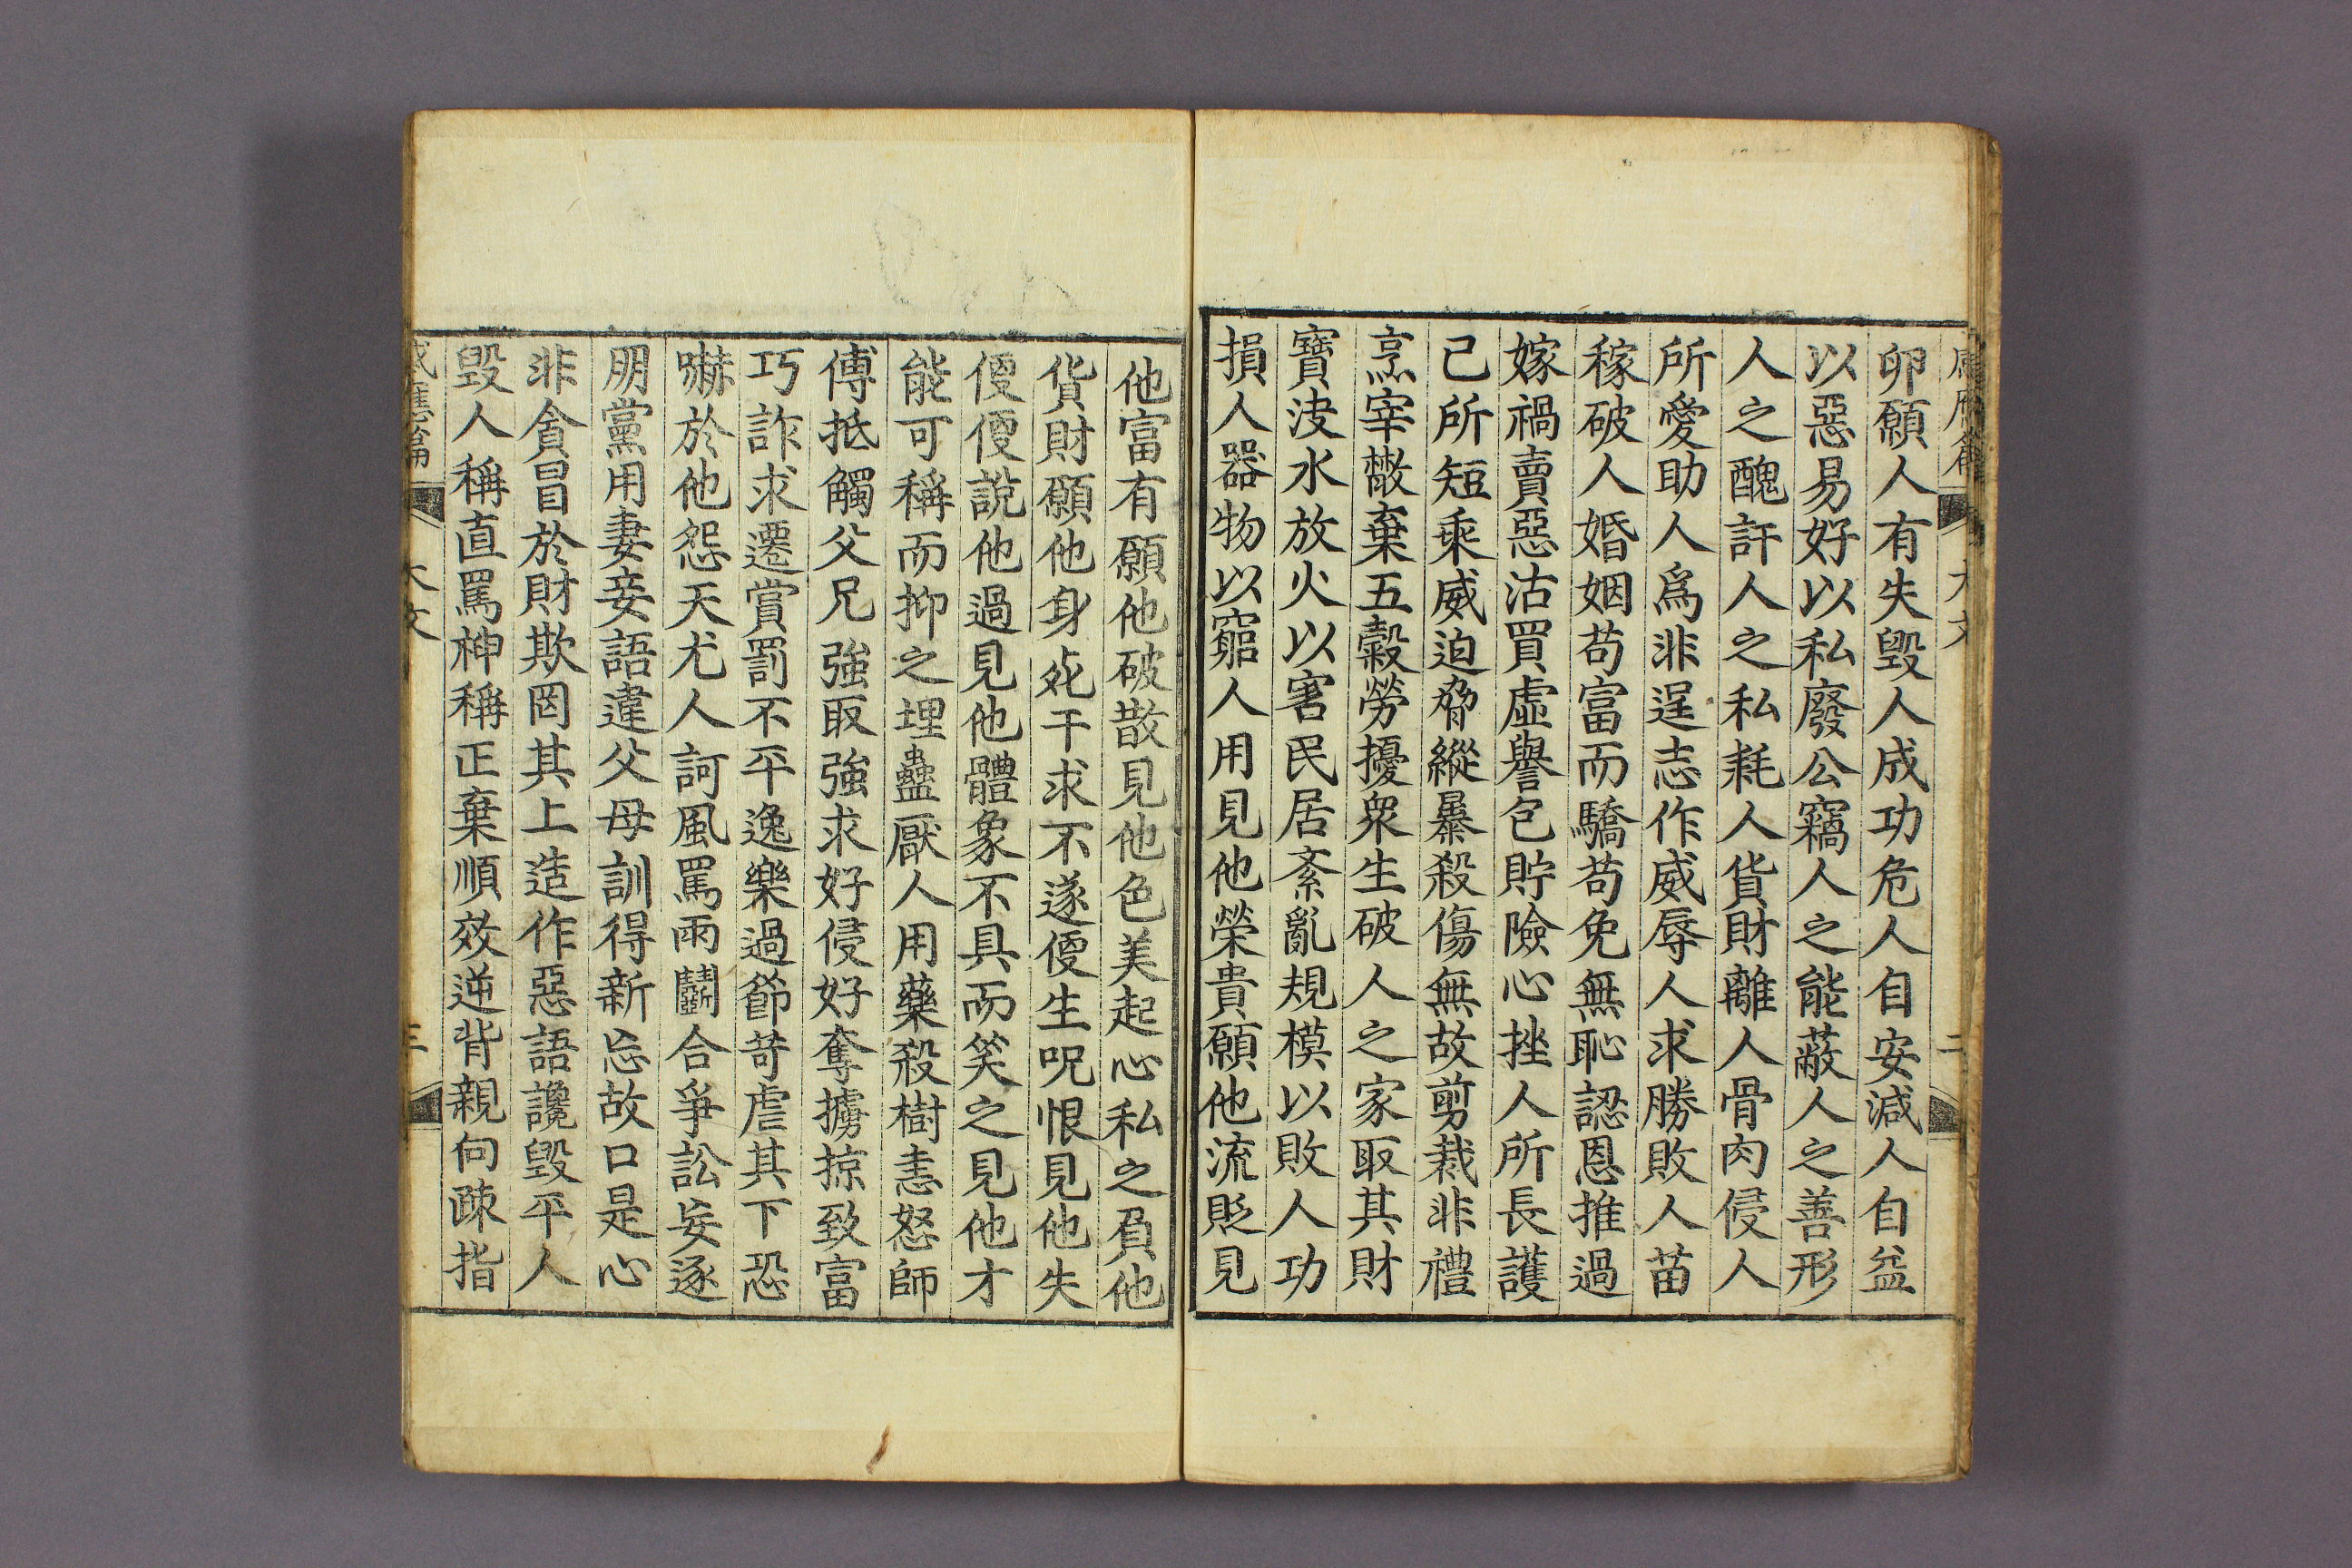 感應篇 大文 二
卵願人有失毀人成功危人自安減人自益
以惡易好以私廢公竊人之能蔽人之善形
人之醜訐人之私耗人貨財離人骨肉侵人
所愛助人爲非逞志作威辱人求勝敗人苗
稼破人婚姻苟富而驕苟免無恥認恩推過
嫁禍賣惡沽買虛譽包貯險心挫人所長護
己所短乘威迫脅縱暴殺傷無故剪裁非禮
烹宰散棄五穀勞擾衆生破人之家取其財
寶決水放火以害民居紊亂規模以敗人功
損人器物以窮人用見他榮貴願他流貶見
他富有願他破散見他色美起心私之負他
貨財願他身死干求不遂便生呪恨見他失
便便說他過見他體象不具而笑之見他才
能可稱而抑之埋蠱厭人用藥殺樹恚怒師
傅抵觸父兄強取強求好侵好奪擄掠致富
巧詐求遷賞罰不平逸樂過節苛虐其下恐
嚇於他怨天尤人訶風罵雨鬪合爭訟妄逐
朋黨用妻妾語違父母訓得新忘故口是心
非貪冒於財欺罔其上造作惡語讒毀平人
毀人稱直罵神稱正棄順效逆背親向疎指
感應篇 大文 三